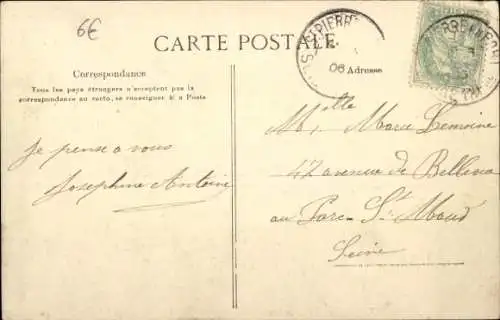 6€
CARTE POSTALE
ST PIERRE
06
Correspondance
Adresse
Tous les pays étrangers n'acceptent pas la
correspondance au verso, se renseigner à la Poste
Je pense a vous
Josephine Antoine
Mlle Marie Lemoine
42 avenue de Bellevue
au Parc-St-Maud
Seine